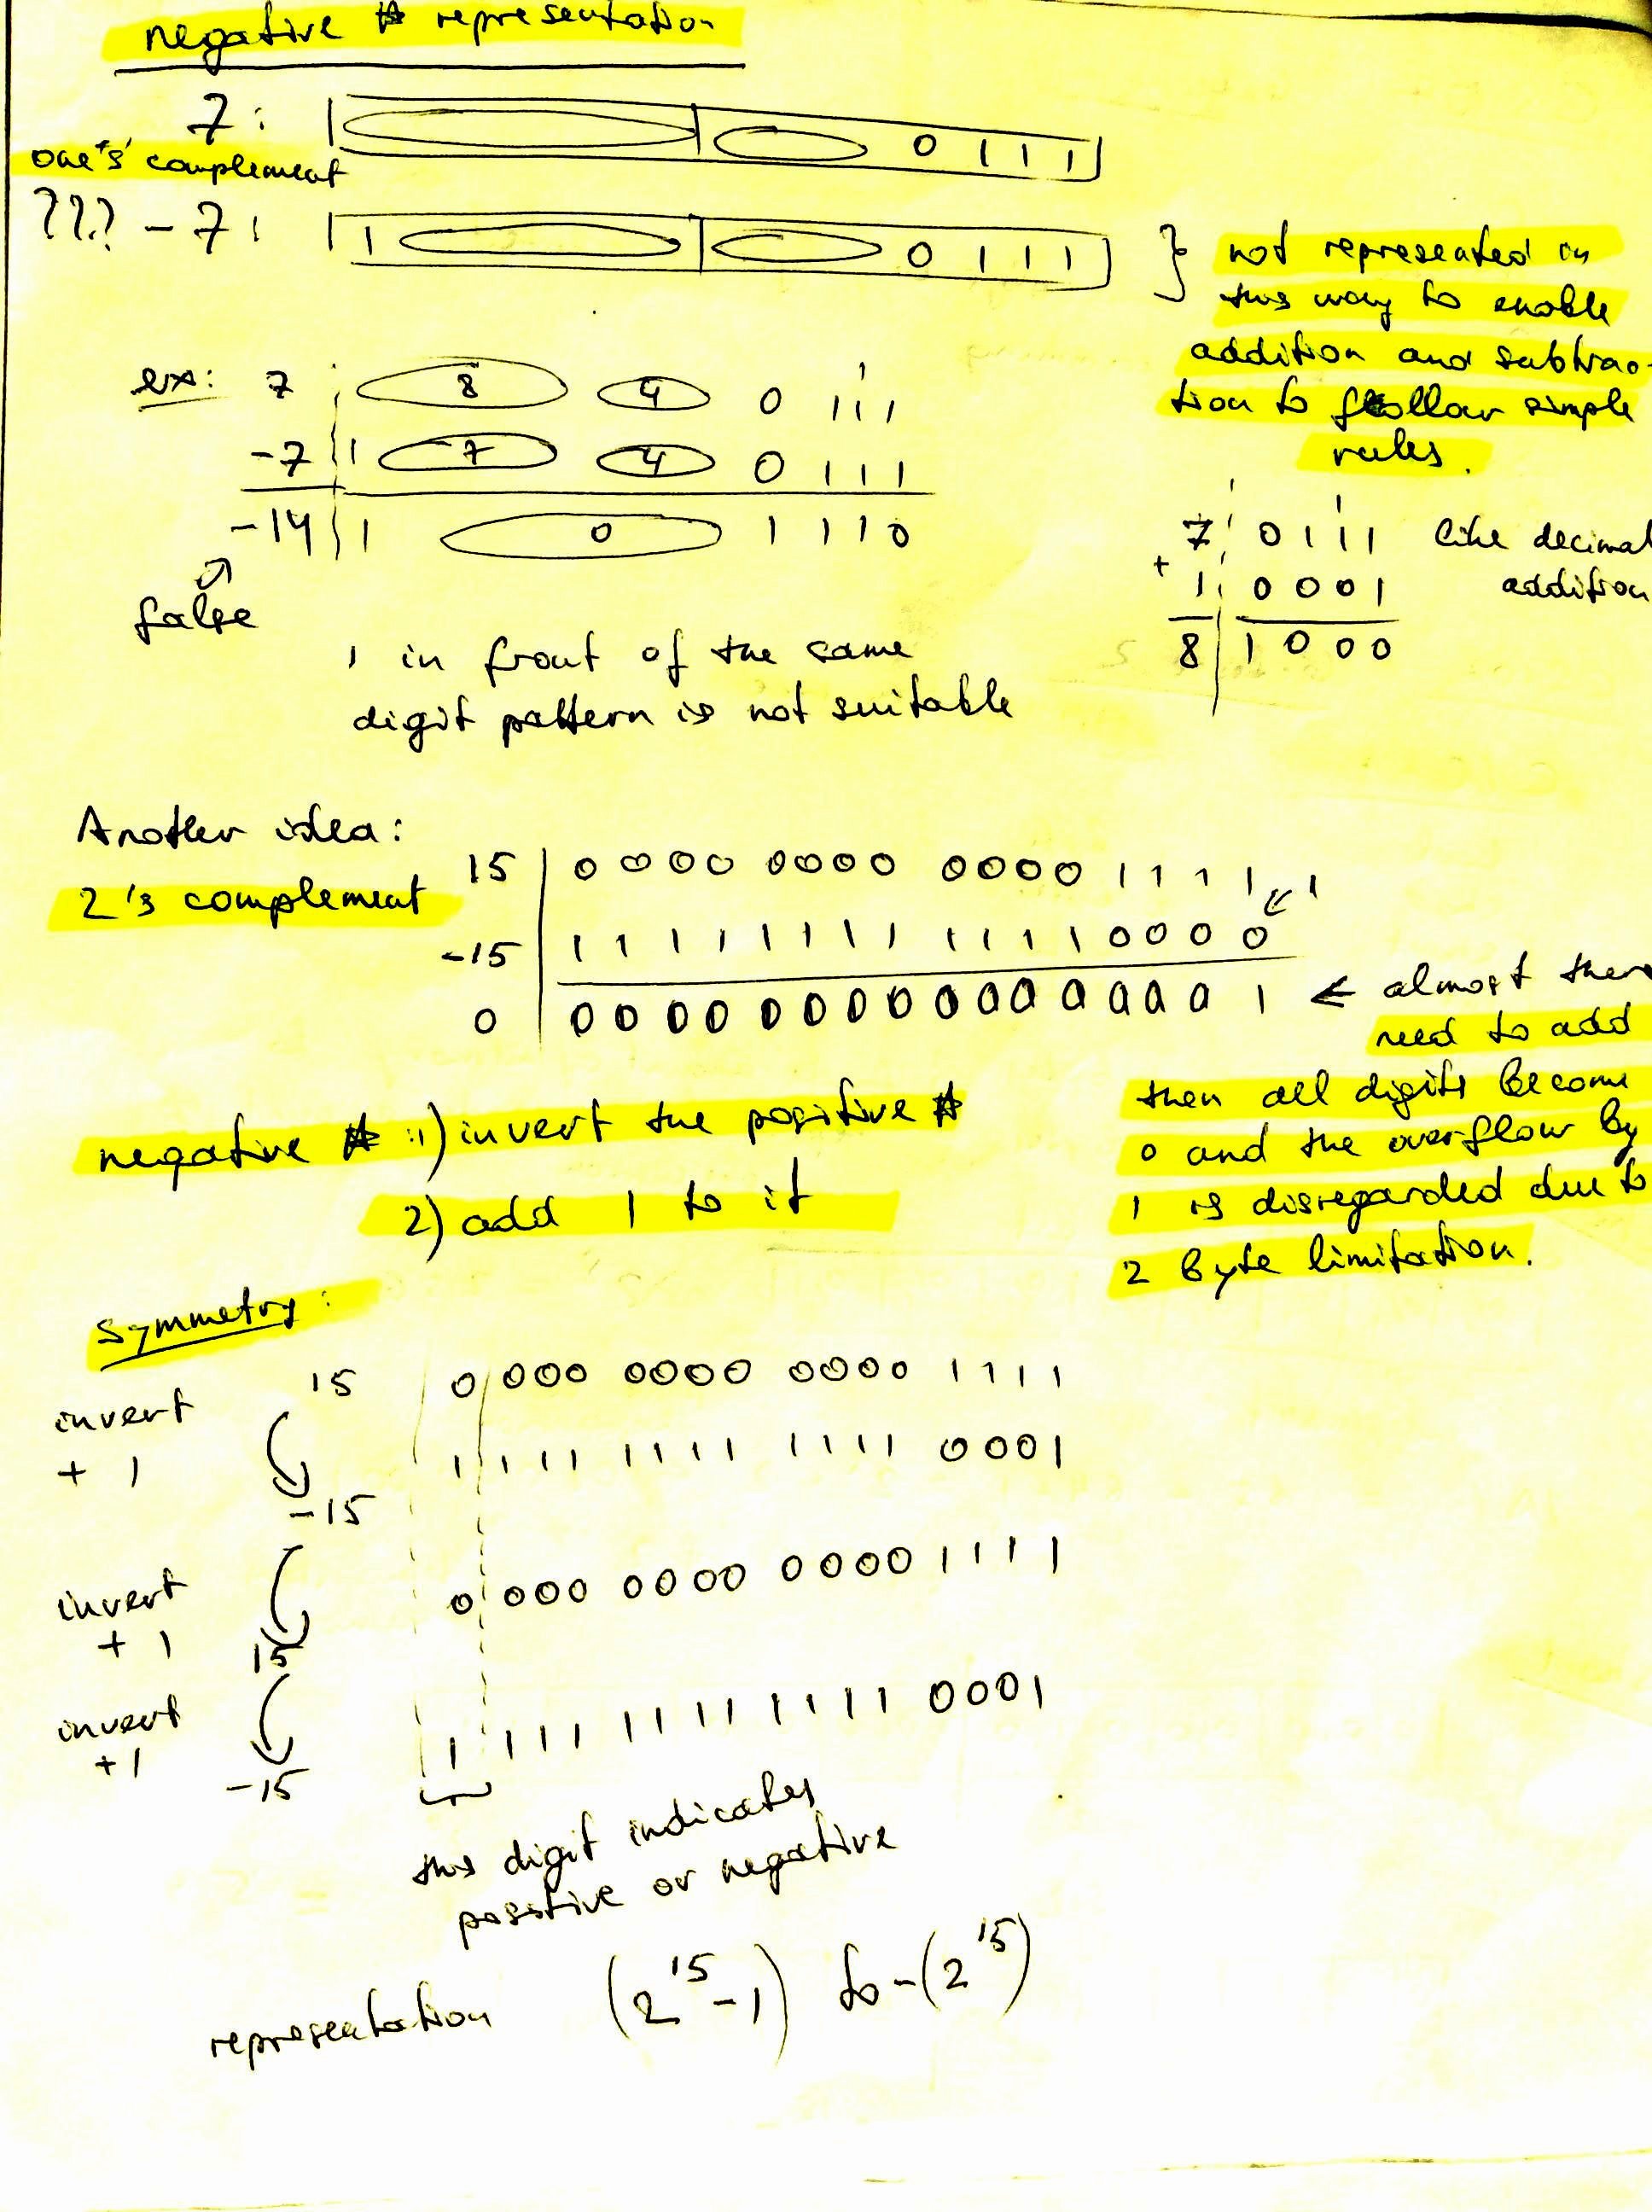 negative # representation
7: 0 1 1 1
one's complement
??? - 7: 1 0 1 1 1
} not represented in
this way to enable
addition and subtrac-
tion to follow simple
rules.
ex: 7 8 4 0 1 1 1
1
-7 1 7 4 0 1 1 1
-14 1 0 1 1 1 0
false
1 in front of the same
digit pattern is not suitable
1
7 0 1 1 1 like decimal
+ 1 0 0 0 1 addition
8 1 0 0 0
Another idea:
2's complement
15 0 0 0 0 0 0 0 0 0 0 0 0 1 1 1 1
1
-15 1 1 1 1 1 1 1 1 1 1 1 1 0 0 0 0
0 0 0 0 0 0 0 0 0 0 0 0 0 0 0 0 1 ← almost there
need to add
then all digits become
0 and the overflow by
1 is disregarded due to
2 Byte limitation.
negative # :1) invert the positive #
2) add 1 to it
Symmetry:
15 0 000 0000 0000 1 1 1 1
invert
+ 1
-15 1 1 1 1 1 1 1 1 1 1 1 1 0 0 0 1
invert
+ 1
15 0 000 0000 0000 1 1 1 1
invert
+1
-15 1 1 1 1 1 1 1 1 1 1 1 1 0 0 0 1
this digit indicates
positive or negative
representation (2^15-1) to -(2^15)